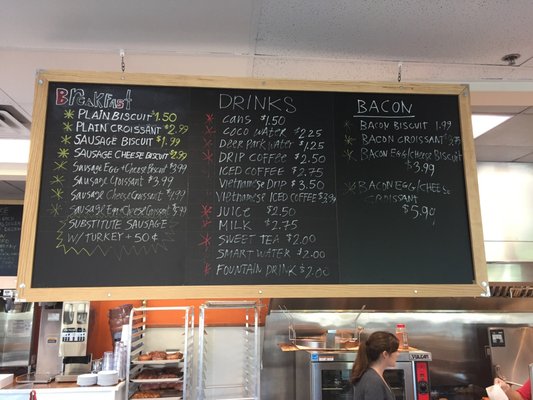 BREAKFAST
PLAIN BISCUIT $1.50
PLAIN CROISSANT $2.99
SAUSAGE BISCUIT $1.99
SAUSAGE CHEESE BISCUIT $2.99
Sausage Egg + Cheese Biscuit $3.99
Sausage Croissant $3.99
Sausage Cheese Croissant $
Sausage Egg + Cheese Croissant
SUBSTITUTE SAUSAGE
W/ TURKEY + 50¢
DRINKS
cans $1.50
COCO WATER $2.25
Deer Park WATER $1.25
DRIP COFFEE $2.50
ICED COFFEE $2.75
Vietnamese Drip $3.50
Vietnamese ICED COFFEE
JUICE $2.50
MILK $2.75
SWEET TEA $2.00
SMART WATER $2.00
FOUNTAIN DRINK $2.00
BACON
BACON BISCUIT 1.99
BACON CROISSANT
BACON EGG/CHEESE BISCUIT
$3.99
BACON EGG/CHEESE
CROISSANT
$5.99
VULCAN